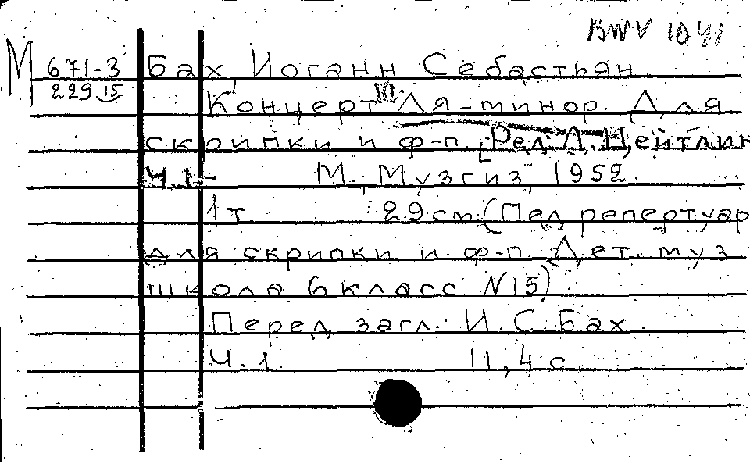 BWV 1041
М 671-3 Бах, Иоганн Себастьян
229 15
Концерт Ля-минор. Для
скрипки и ф-п. [Ред. Л. Цейтлин
Ч.1- М., Музгиз, 1952.
1 т 29 см. (Пед. репертуар
для скрипки и ф-п. Дет. муз
школа 6 класс N 15)
Перед загл.: И. С. Бах.
Ч. 1. 11, 4 с